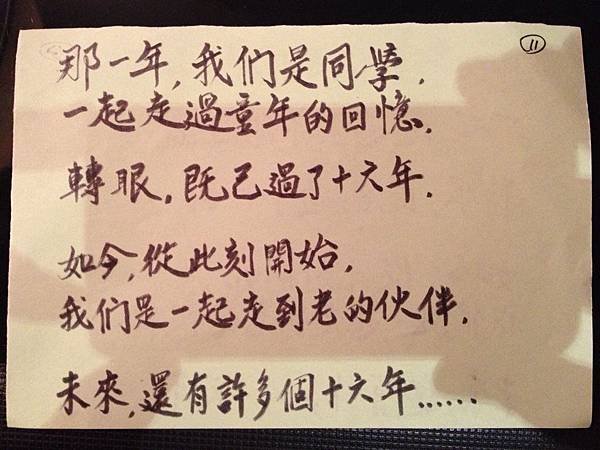 ⑪
那一年,我们是同學,
一起走過童年的回憶.
轉眼,既已過了十六年.
如今,從此刻開始,
我们是一起走到老的伙伴.
未來,還有許多個十六年......